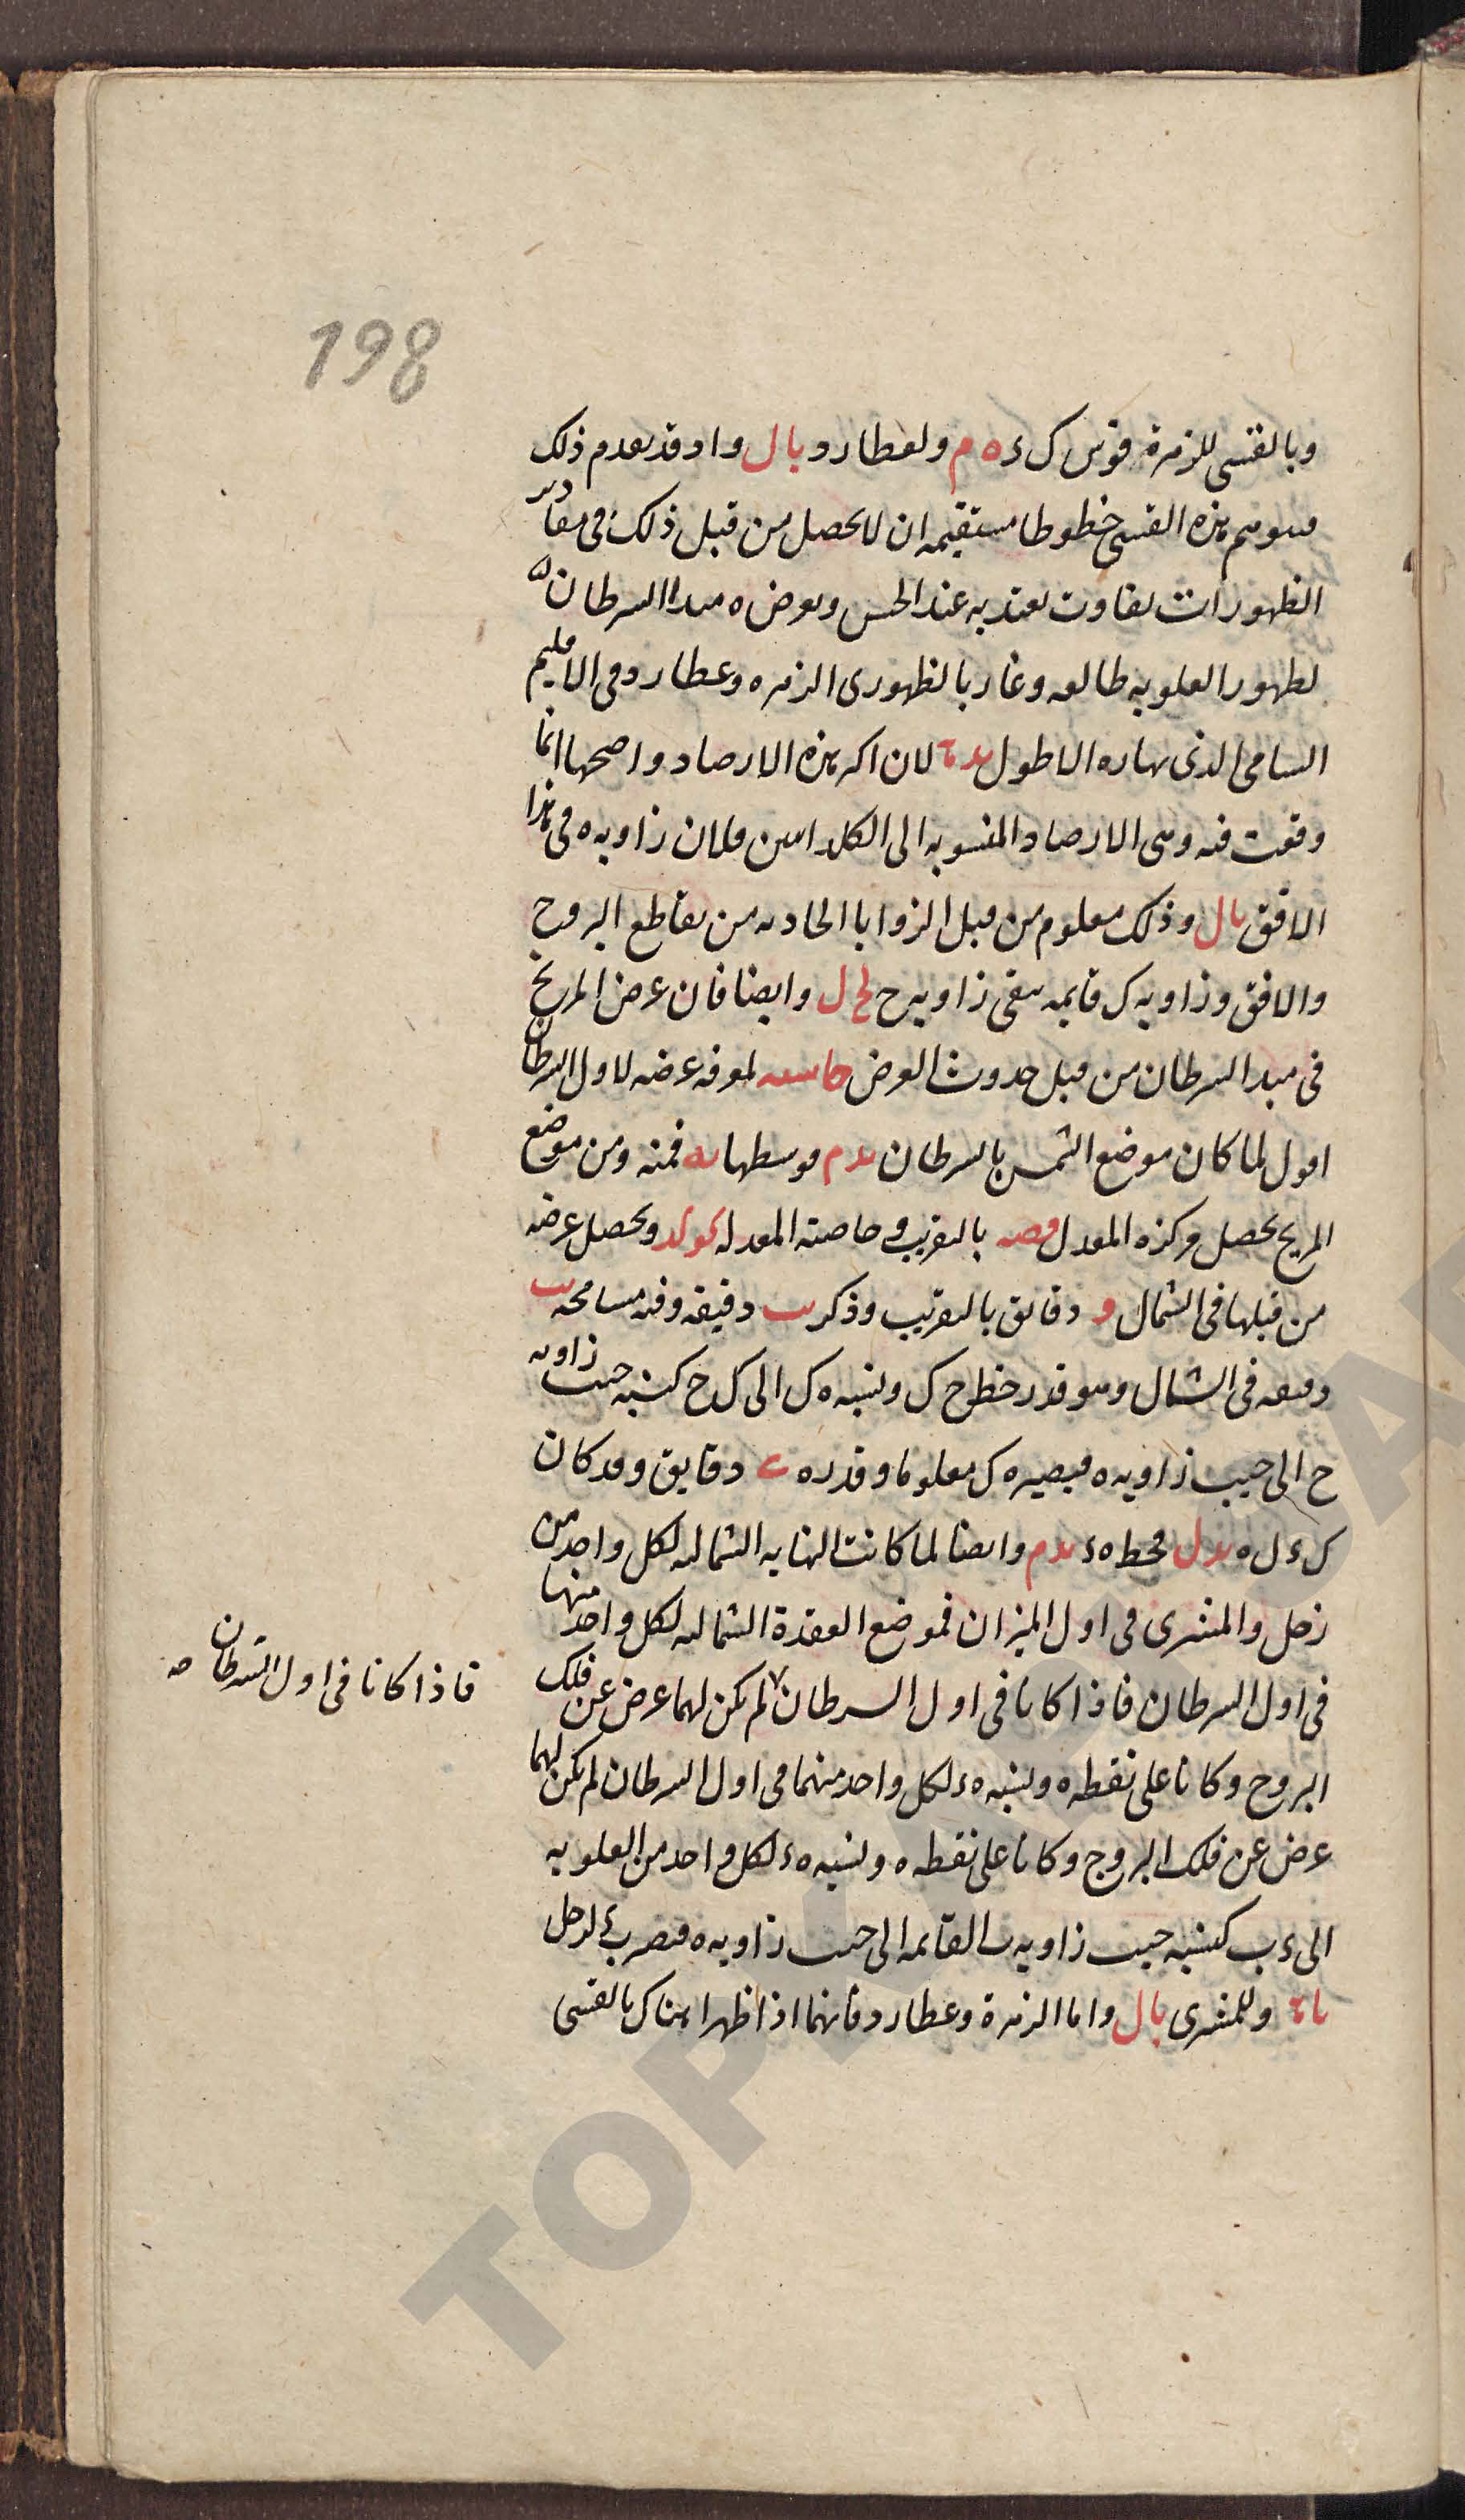 198
وبالقسى للزهرة قوس ك ء ه م ولعطارد يا ل واد قد تقدم ذلك
فتوهم هذه القسى خطوطا مستقيمه ان لا يحصل من قبل ذلك فى مقادير
الظهورات تفاوت يعتد به عند الحس ونفرض ه مبدا السرطان
لظهور العلويه طالعه وغاربا لظهورى الزهره وعطارد وفى الاقليم
الذى نهاره الاطول لان اكثر هذه الارصاد واصحها انما
وقعت فيه وهى الارصاد المنسوبه الى الكلدانيين فلان زاويه ه فى هذا
الافق وذلك معلوم من قبل الزوايا الحادثه من تقاطع البروج
والافق وزاويه ك قايمه يبقى زاويه ح لح ل وايضا فان عرض المريخ
فى مبدا السرطان من قبل حدوث العرض حاشيه لمعرفه عرضه لاول السرطان
اقول لما كان موضع الشمس بالسرطان فوسطها فمنه ومن موضع
المريخ يحصل مركزه المعدل بالتقريب وخاصته المعدله ويحصل عرضه
من قبلها فى الشمال و دقائق بالتقريب وذكر دقيقه وفيه مسامحه
دقيقه فى الشمال وهو قدر خط ح ك ونسبه ه ك الى ك ح كنسبه جيب زاويه
ح الى جيب زاويه ه فيصير ه ك معلوما وقدره دقايق وقد كان
ك ء ل ه فخط ه ء وايضا لما كانت النهايه الشماليه لكل واحد من
زحل والمشترى فى اول الميزان فموضع العقدة الشماليه لكل واحد منهما
فى اول السرطان فاذا كانا فى اول السرطان لم يكن لهما عرض عن فلك
البروج وكانا على نقطه ه ونسبه ه ء لكل واحد منهما فى اول السرطان لم يكن لهما
عرض عن فلك البروج وكانا على نقطه ه ونسبه ه ء لكل واحد من العلويه
الى ء ب كنسبه جيب زاويه ب القايمه الى جيب زاويه ه فيصير ء ب لزحل
وللمشترى يا ل واما الزهرة وعطارد فانهما اذا ظهرا هناك بالقسى
فاذا كانا فى اول السرطان صه